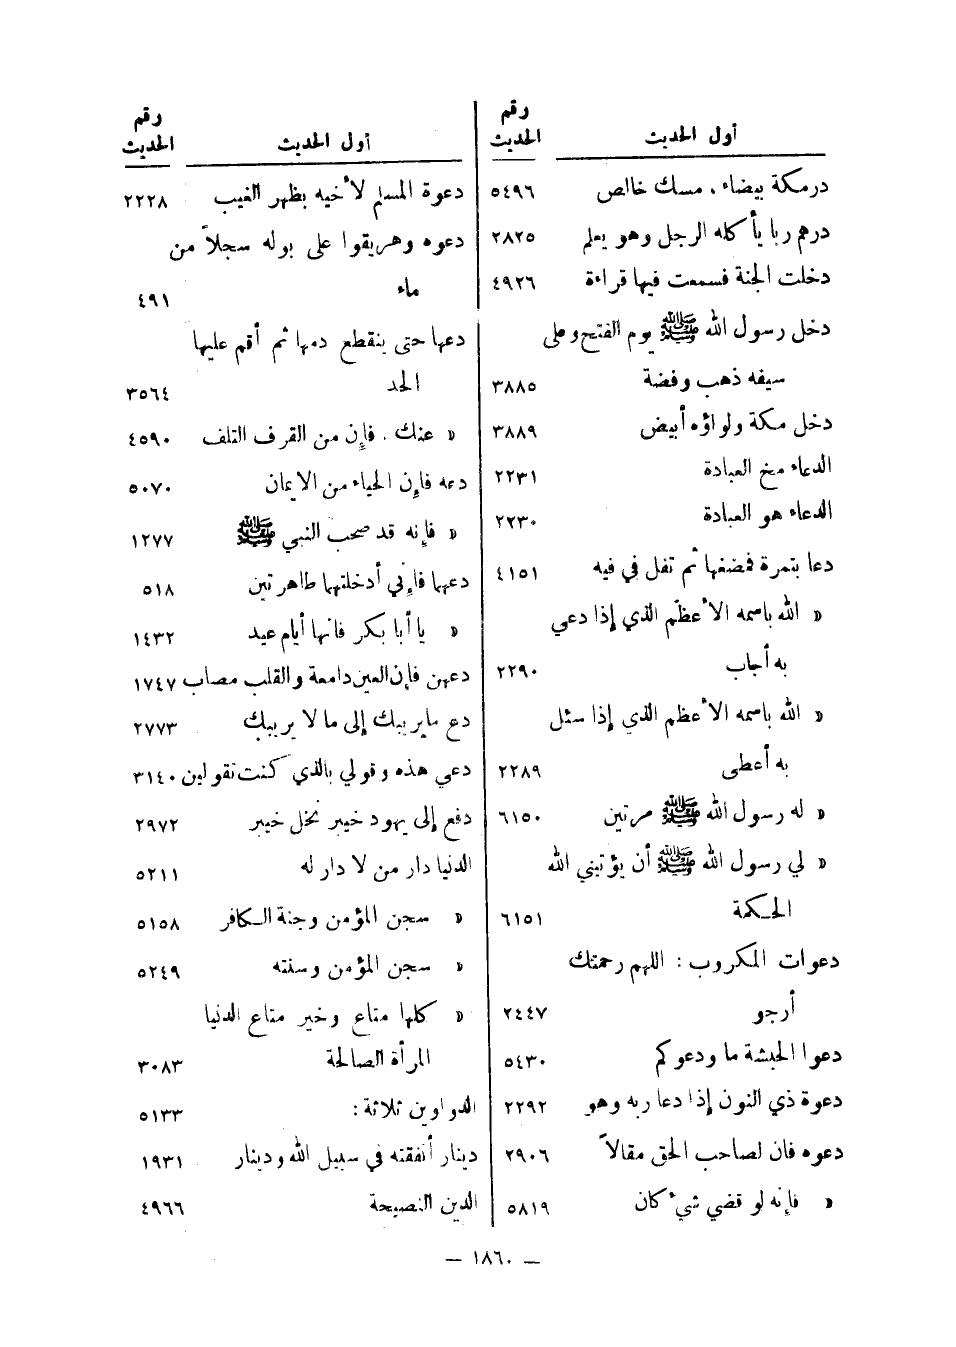 أول الحديث
رقم
الحديث
درمكة بيضاء . مسك خالص ٥٤٩٦
درهم ربا يأكله الرجل وهو يعلم ٢٨٢٥
دخلت الجنة فسمعت فيها قراءة ٤٩٢٦
دخل رسول الله ﷺ يوم الفتح وعلى
سيفه ذهب وفضة ٣٨٨٥
دخل مكة ولواؤه أبيض ٣٨٨٩
الدعاء مخ العبادة ٢٢٣١
الدعاء هو العبادة ٢٢٣٠
دعا بتمرة فمضغها ثم تفل في فيه ٤١٥١
« الله باسمه الأعظم الذي إذا دعي
به أجاب ٢٢٩٠
« الله باسمه الأعظم الذي إذا سئل
به أعطى ٢٢٨٩
« له رسول الله ﷺ مرتين ٦١٥٠
« لي رسول الله ﷺ أن يؤتيني الله
الحكمة ٦١٥١
دعوات المكروب : اللهم رحمتك
أرجو ٢٤٤٧
دعوا الحبشة ما ودعوكم ٥٤٣٠
دعوة ذي النون إذا دعا ربه وهو ٢٢٩٢
دعوه فان لصاحب الحق مقالاً ٢٩٠٦
« فإنه لو قضي شيء كان ٥٨١٩
أول الحديث
رقم
الحديث
دعوة المسلم لأخيه بظهر الغيب ٢٢٢٨
دعوه وهريقوا على بوله سجلاً من
ماء ٤٩١
دعها حتى ينقطع دمها ثم أقم عليها
الحد ٣٥٦٤
« عنك . فإن من القرف التلف ٤٥٩٠
دعه فإن الحياء من الايمان ٥٠٧٠
« فإنه قد صحب النبي ﷺ ١٢٧٧
دعهما فإني أدخلتهما طاهرتين ٥١٨
« يا أبا بكر فانها أيام عيد ١٤٣٢
دعهن فإن العين دامعة والقلب مصاب ١٧٤٧
دع ما يريبك إلى ما لا يريبك ٢٧٧٣
دعي هذه وقولي بالذي كنت تقولين ٣١٤٠
دفع إلى يهود خيبر نخل خيبر ٢٩٧٢
الدنيا دار من لا دار له ٥٢١١
« سجن المؤمن وجنة الكافر ٥١٥٨
« سجن المؤمن وسنته ٥٢٤٩
« كلها متاع وخير متاع الدنيا
المرأة الصالحة ٣٠٨٣
الدواوين ثلاثة : ٥١٣٣
دينار أنفقته في سبيل الله ودينار ١٩٣١
الدين النصيحة ٤٩٦٦
— ١٨٦٠ —